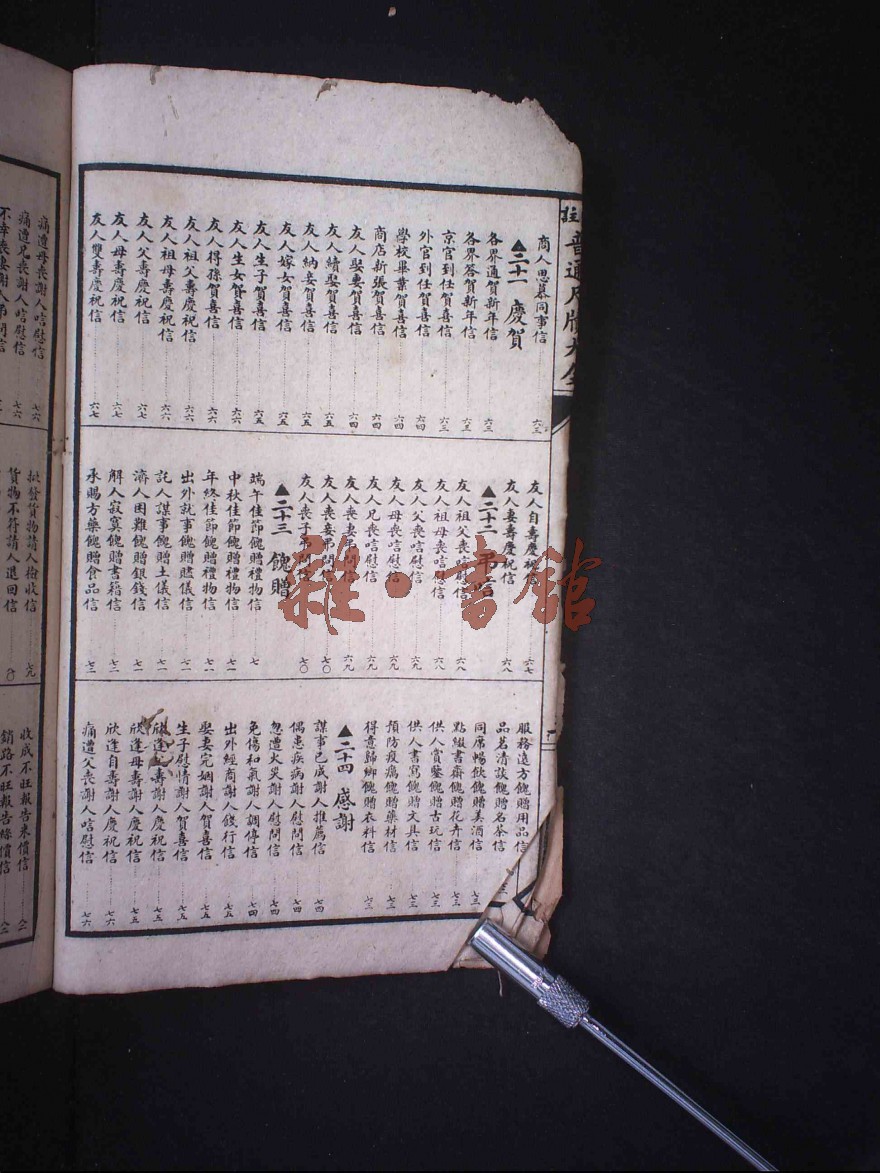 註普通尺牘大全
商人思慕同事信 六三
▲二十一 慶賀
各界通賀新年信 六三
各界答賀新年信 六三
京官到任賀喜信 六三
外官到任賀喜信 六四
學校畢業賀喜信 六四
商店新張賀喜信 六四
友人娶妻賀喜信 六四
友人續娶賀喜信 六五
友人納妾賀喜信 六五
友人嫁女賀喜信 六五
友人生子賀喜信 六五
友人生女賀喜信 六六
友人得孫賀喜信 六六
友人祖父壽慶祝信 六六
友人祖母壽慶祝信 六六
友人父壽慶祝信 六七
友人母壽慶祝信 六七
友人雙壽慶祝信 六七
友人自壽慶祝信 六七
友人妻壽慶祝信 六八
▲二十二 弔唁
友人祖父喪唁慰信 六八
友人祖母喪唁慰信 六八
友人父喪唁慰信 六九
友人母喪唁慰信 六九
友人兄喪唁慰信 六九
友人喪妻弔問信 六九
友人喪妾弔問信 七〇
友人喪子弔問信 七〇
▲二十三 餽贈
端午佳節餽贈禮物信 七
中秋佳節餽贈禮物信 七一
年終佳節餽贈禮物信 七一
出外就事餽贈贐儀信 七一
託人謀事餽贈土儀信 七一
濟人困難餽贈銀錢信 七一
解人寂寞餽贈書籍信 七二
承賜方藥餽贈食品信 七二
服務遠方餽贈用品信
品茗清談餽贈名茶信 三
同席暢飲餽贈美酒信 七三
點綴書齋餽贈花卉信 七三
供人賞鑒餽贈古玩信 七三
供人書寫餽贈文具信 七三
預防疫癘餽贈藥材信 七三
得意歸鄉餽贈衣料信 七三
▲二十四 感謝
謀事已成謝人推薦信 七四
偶患疾病謝人慰問信 七四
忽遭火災謝人慰問信 七四
免傷和氣謝人調停信 七四
出外經商謝人餞行信 七五
娶妻完姻謝人賀喜信 七五
生子慰情謝人賀喜信 七五
欣逢壽謝人慶祝信 七五
欣逢母壽謝人慶祝信 七五
欣逢自壽謝人慶祝信 七六
痛遭父喪謝人唁慰信 七六
痛遭母喪謝人唁慰信 七六
痛遭兄喪謝人唁慰信 七六
不幸喪妻謝人弔問信
批發貨物請人檢收信 七九
貨物不符請人退回信 〇
收成不旺報告米價信
銷路不旺報告絲價信
雜·書館